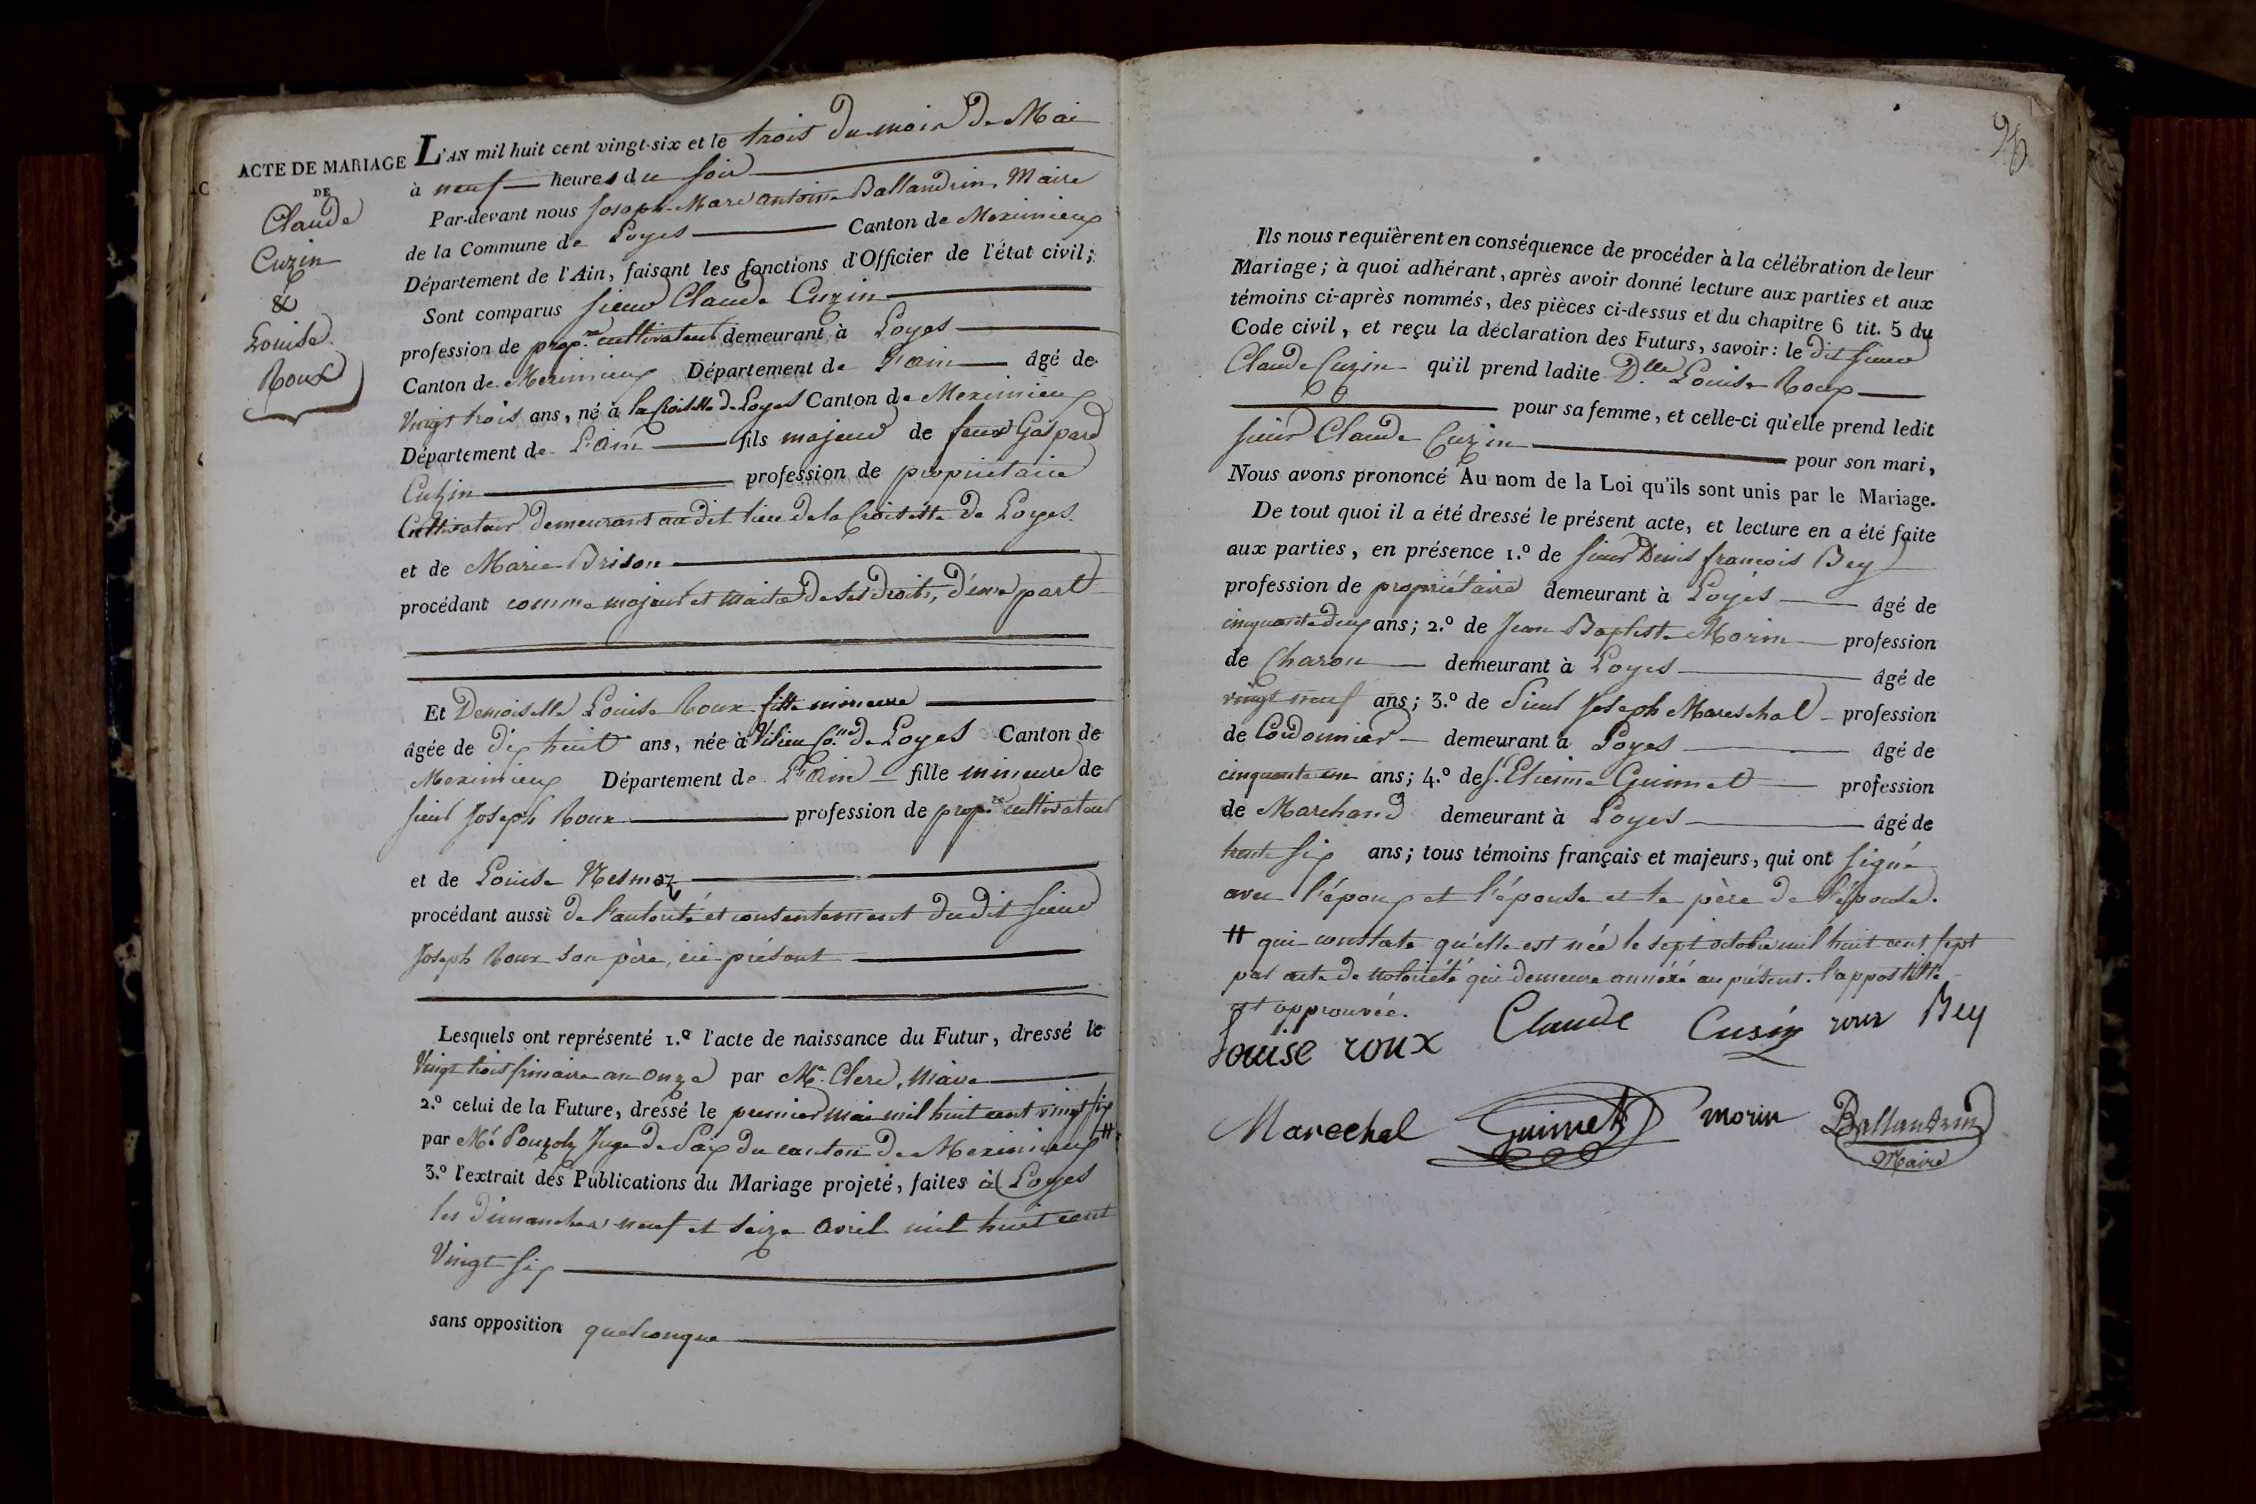 ACTE DE MARIAGE
DE
Claude
Cuzin
&
Louise
Roux
L'AN mil huit cent vingt-six et le trois du mois de Mai
à neuf heures du soir
Par-devant nous Joseph Marc antoine Ballandrin, Maire
de la Commune de Loyes Canton de Meximieux
Département de l'Ain, faisant les fonctions d'Officier de l'état civil;
Sont comparus sieur Claude Cuzin
profession de prop.re cultivateur demeurant à Loyes
Canton de Meximieux Département de L'ain âgé de
Vingt trois ans, né à la Croisette de Loyes Canton de Meximieux
Département de L'ain fils majeur de feux Gaspard
Cuzin profession de propriétaire
Cultivateur demeurant au dit lieu de la Croisette de Loyes.
et de Marie Brison
procédant comme majeur et maitre de ses droits, d'une part
Et Demoiselle Louise Roux fille mineure
âgée de dix huit ans, née à Vilieu C.ne de Loyes Canton de
Meximieux Département de L'ain fille mineure de
sieur Joseph Roux profession de prop.re cultivateur
et de Louise Nesmoz
procédant aussi de l'autorité et consentement du dit sieur
Joseph Roux son père, ici présent
Lesquels ont représenté 1.º l'acte de naissance du Futur, dressé le
Vingt trois frimaire an onze par Mr. Clerc, Maire
2.º celui de la Future, dressé le premier mai mil huit cent vingt six
par Mr. Pouzolz Juge de Paix du canton de Meximieux #
3.º l'extrait des Publications du Mariage projeté, faites à Loyes
les dimanches neuf et seize avril mil huit cent
Vingt six
sans opposition quelconque
96
Ils nous requièrent en conséquence de procéder à la célébration de leur
Mariage; à quoi adhérant, après avoir donné lecture aux parties et aux
témoins ci-après nommés, des pièces ci-dessus et du chapitre 6 tit. 5 du
Code civil, et reçu la déclaration des Futurs, savoir: le dit sieur
Claude Cuzin qu'il prend ladite D.lle Louise Roux
pour sa femme, et celle-ci qu'elle prend ledit
sieur Claude Cuzin pour son mari,
Nous avons prononcé Au nom de la Loi qu'ils sont unis par le Mariage.
De tout quoi il a été dressé le présent acte, et lecture en a été faite
aux parties, en présence 1.º de sieur Denis françois Bey
profession de propriétaire demeurant à Loyes âgé de
cinquante deux ans; 2.º de Jean Baptiste Morin profession
de Charon demeurant à Loyes âgé de
vingt neuf ans; 3.º de Sieur Joseph Mareschal profession
de Cordonnier demeurant à Loyes âgé de
cinquante un ans; 4.º de S.r Etienne Guimet profession
de Marchand demeurant à Loyes âgé de
trente six ans; tous témoins français et majeurs, qui ont signé
avec l'époux et l'épouse et le père de l'épouse.
# qui constate qu'elle est née le sept octobre mil huit cent sept
par acte de notoriété qui demeure annéxé au présent. l'appostille
est approuvée.
Louise roux Claude Cusin roux Bey
Marechal Guimet morin Ballandrin
Maire